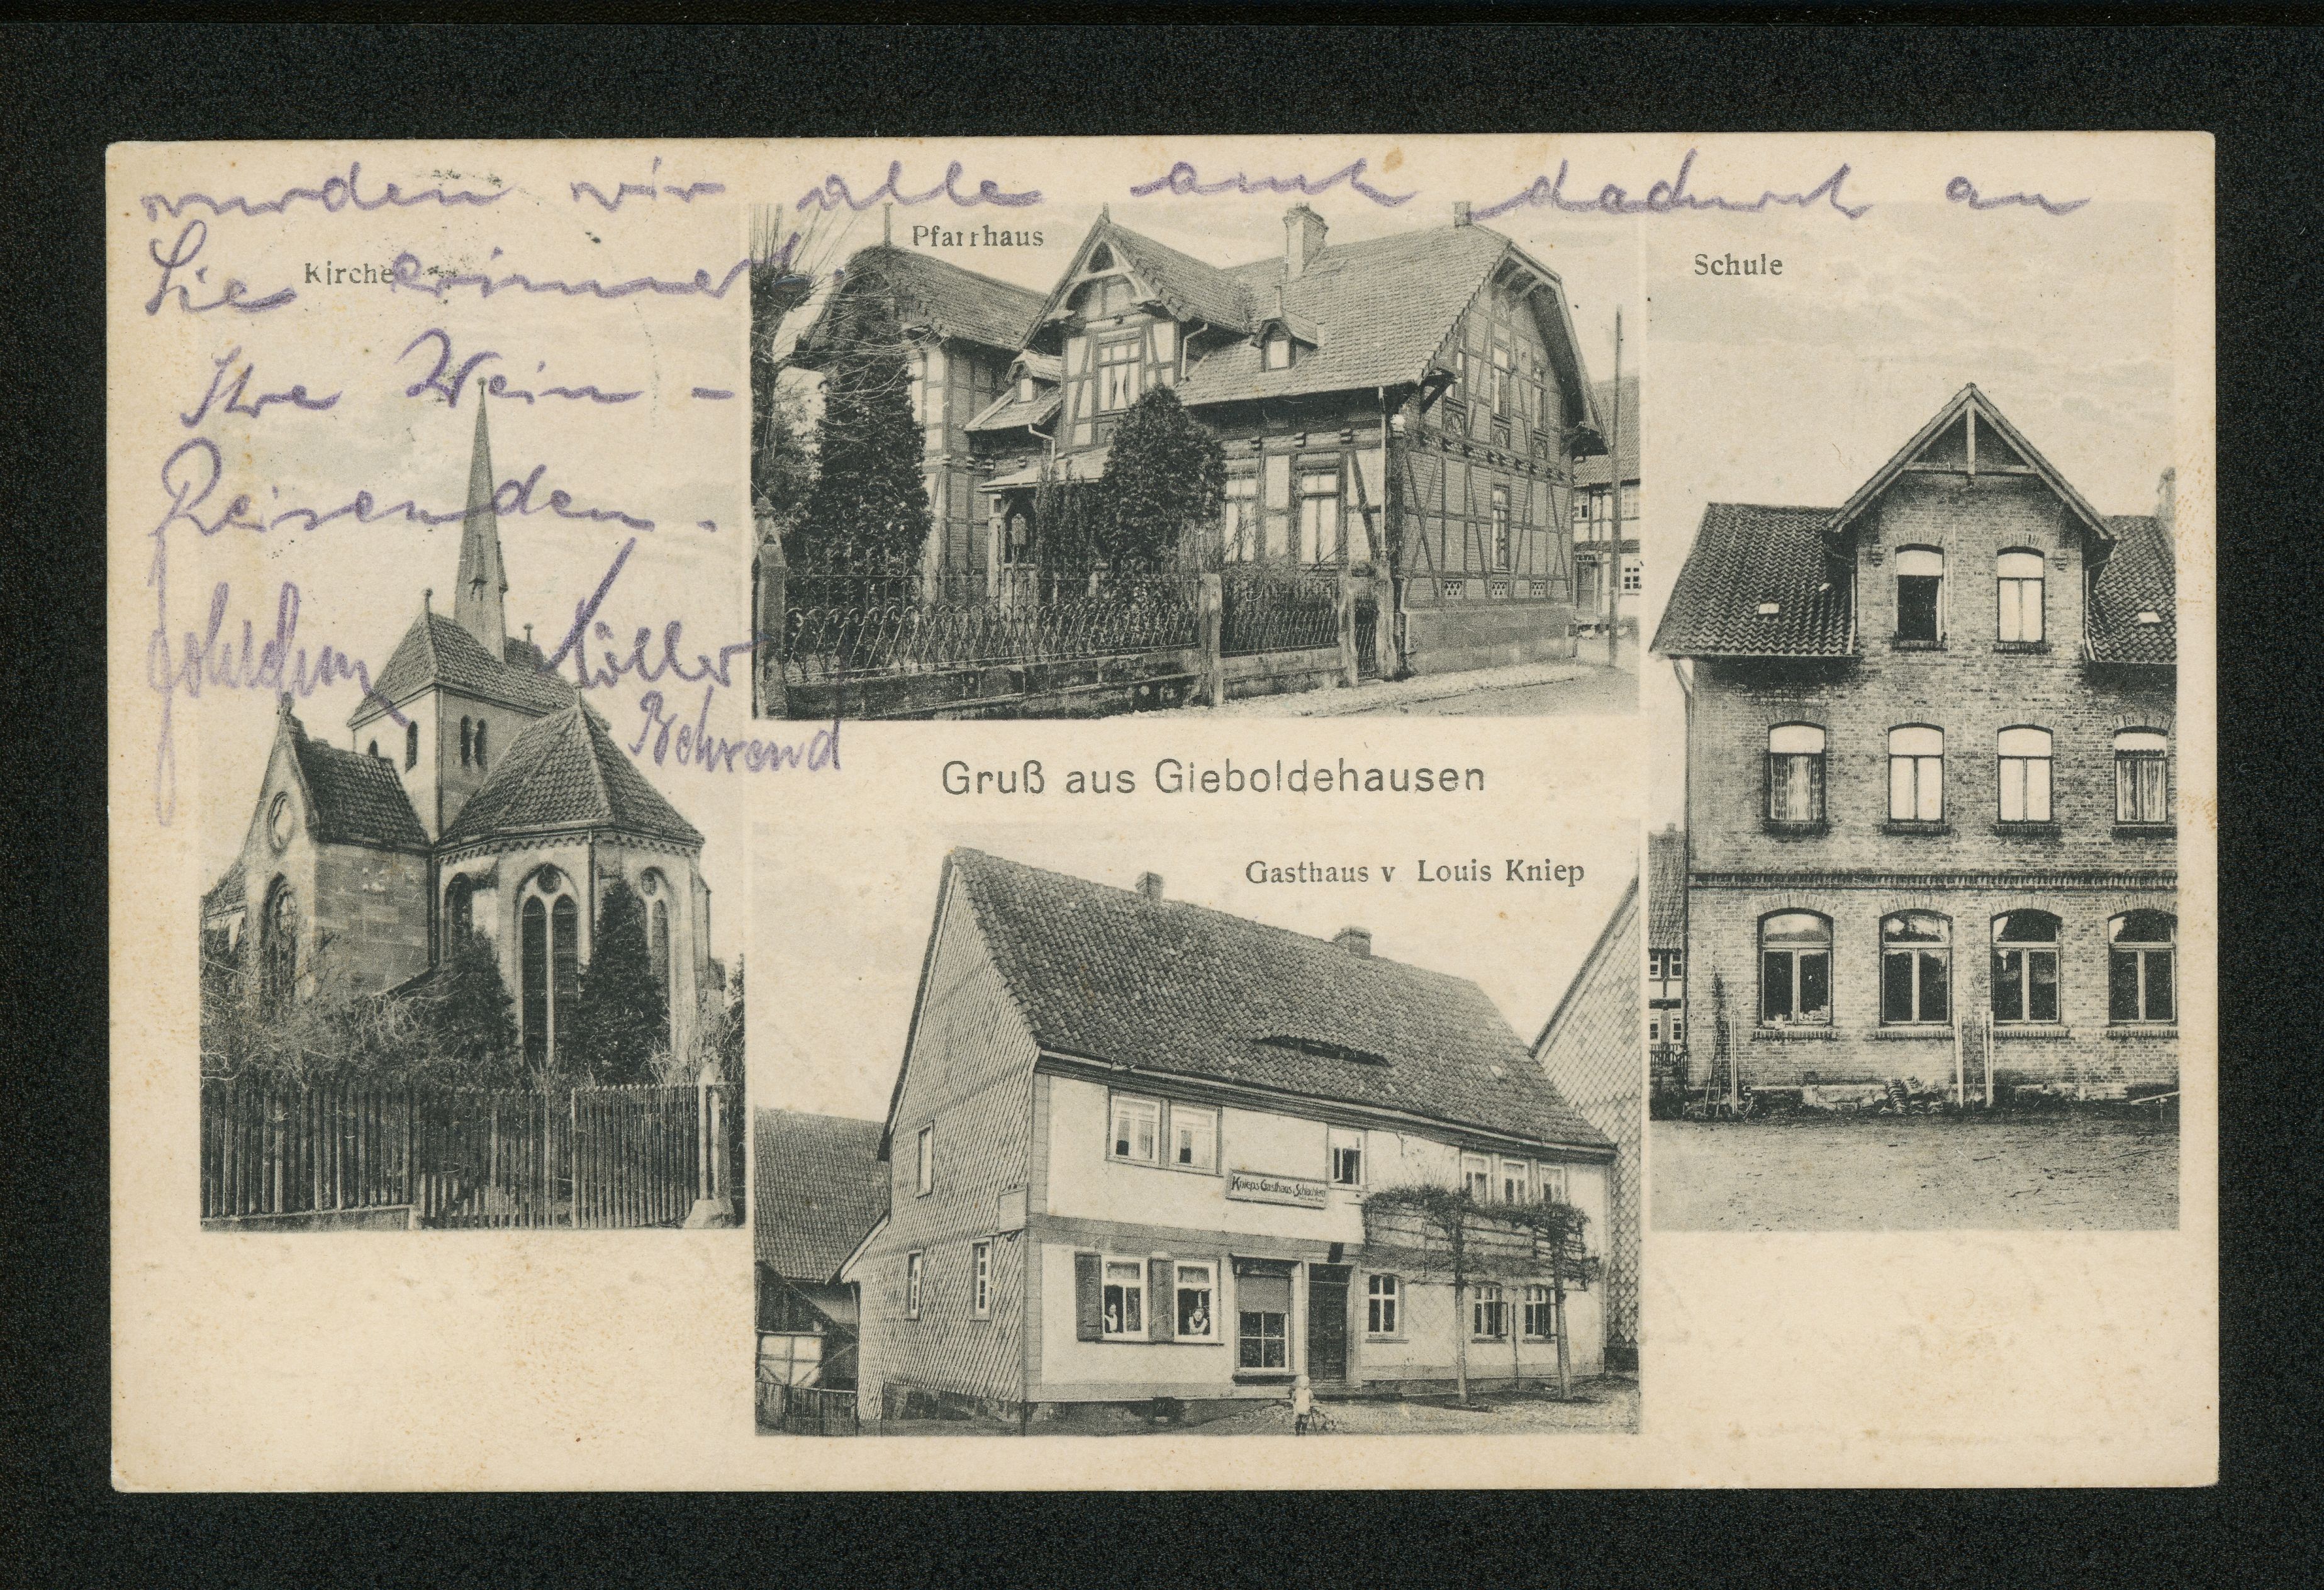 wurden wir alle auch dadurch an
Sie erinnert.
Ihre Wein-
Reisenden.
Müller
Behrend
Kirche
Pfarrhaus
Schule
Gruß aus Gieboldehausen
Gasthaus v Louis Kniep
Knieps Gasthaus